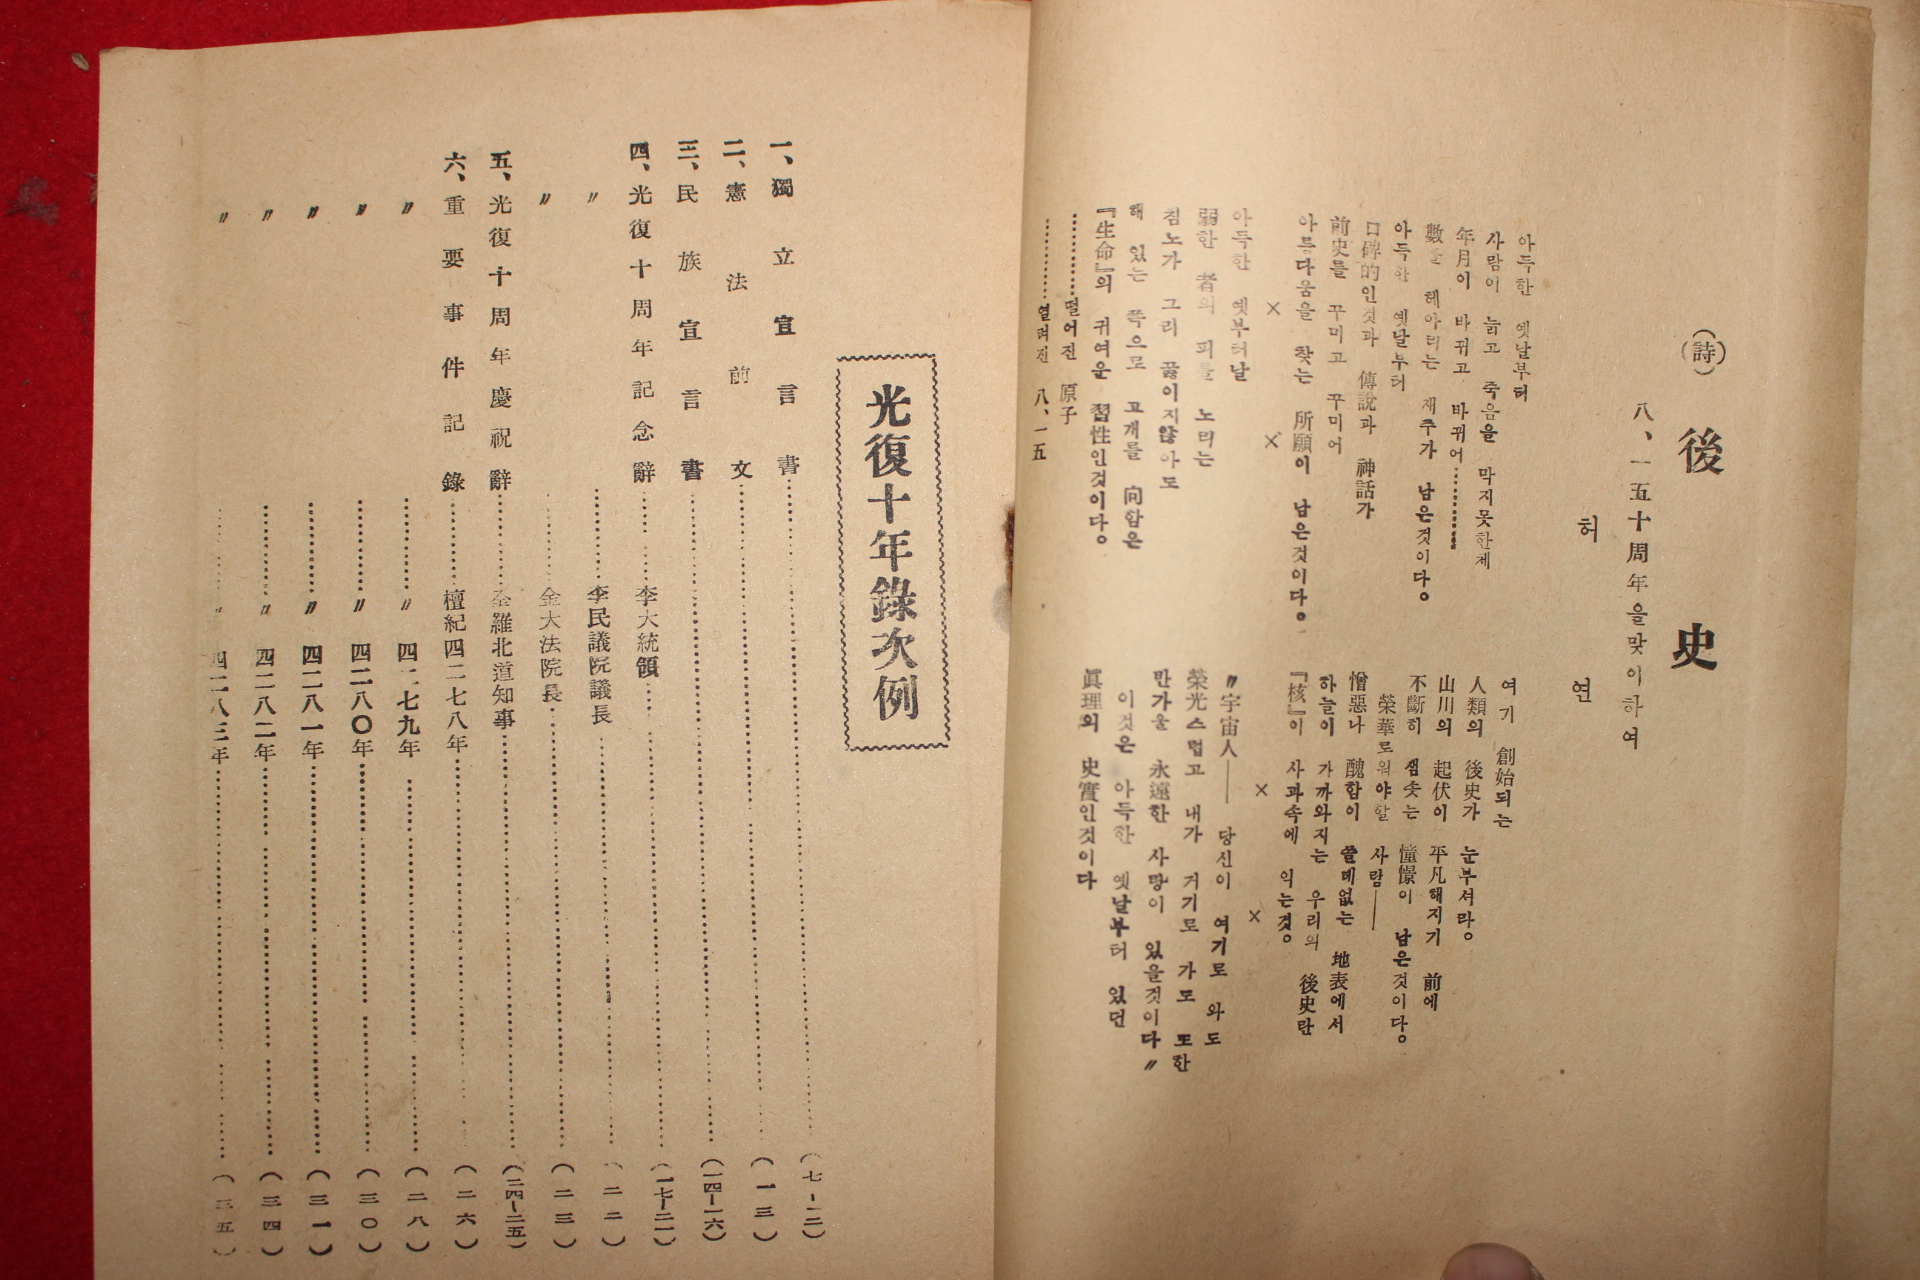 (詩)
後史
八、一五十周年을맞이하여
허연
아득한 옛날부터
사람이 늙고 죽음을 막지못한체
年月이 바뀌고 바뀌어………
數를 헤아리는 재주가 남은것이다。
아득한 옛날부터
口碑的인것과 傳說과 神話가
前史를 꾸미고 꾸미어
아름다움을 찾는 所願이 남은것이다。
× ×
아득한 옛부터날
弱한 者의 피를 노리는
침노가 그리 끓이지않아도
해 있는 쪽으로 고개를 向함은
『生命』의 귀여운 習性인것이다。
………떨어진 原子
………열려진 八、一五
여기 創始되는
人類의 後史가 눈부셔라。
山川의 起伏이 平凡해지기 前에
不斷히 샘솟는 憧憬이 남은것이다。
榮華로워야할 사람——
憎惡나 醜함이 쓸데없는 地表에서
하늘이 가까와지는 우리의 後史란
『核』이 사과속에 익는것。
× ×
〃宇宙人—— 당신이 여기로 와도
榮光스럽고 내가 거기로 가도 또한
만가울 永遠한 사랑이 있을것이다〃
이것은 아득한 옛날부터 있던
眞理의 史實인것이다
光復十年錄次例
一、獨立宣言書………(七-一二)
二、憲法前文………(一三)
三、民族宣言書………(一四-一六)
四、光復十周年記念辭………李大統領………(一七-二一)
〃………李民議院議長………(二二)
〃………金大法院長………(二三)
五、光復十周年慶祝辭………全羅北道知事………(二四-二五)
六、重要事件記錄………檀紀四二七八年………(二六)
〃………〃四二七九年………(二八)
〃………〃四二八〇年………(三〇)
〃………〃四二八一年………(三一)
〃………〃四二八二年………(三四)
〃………〃四二八三年………(三五)